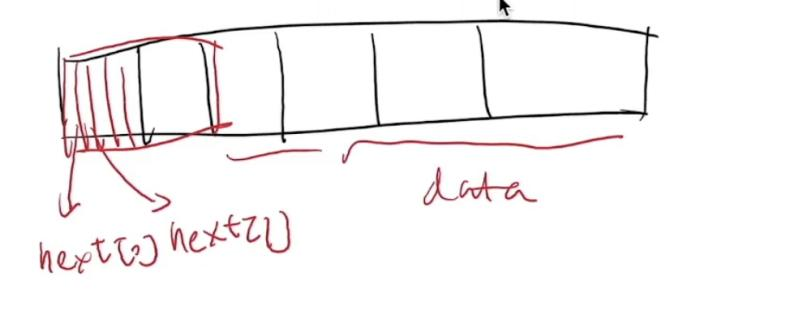 data
next[0] next[1]